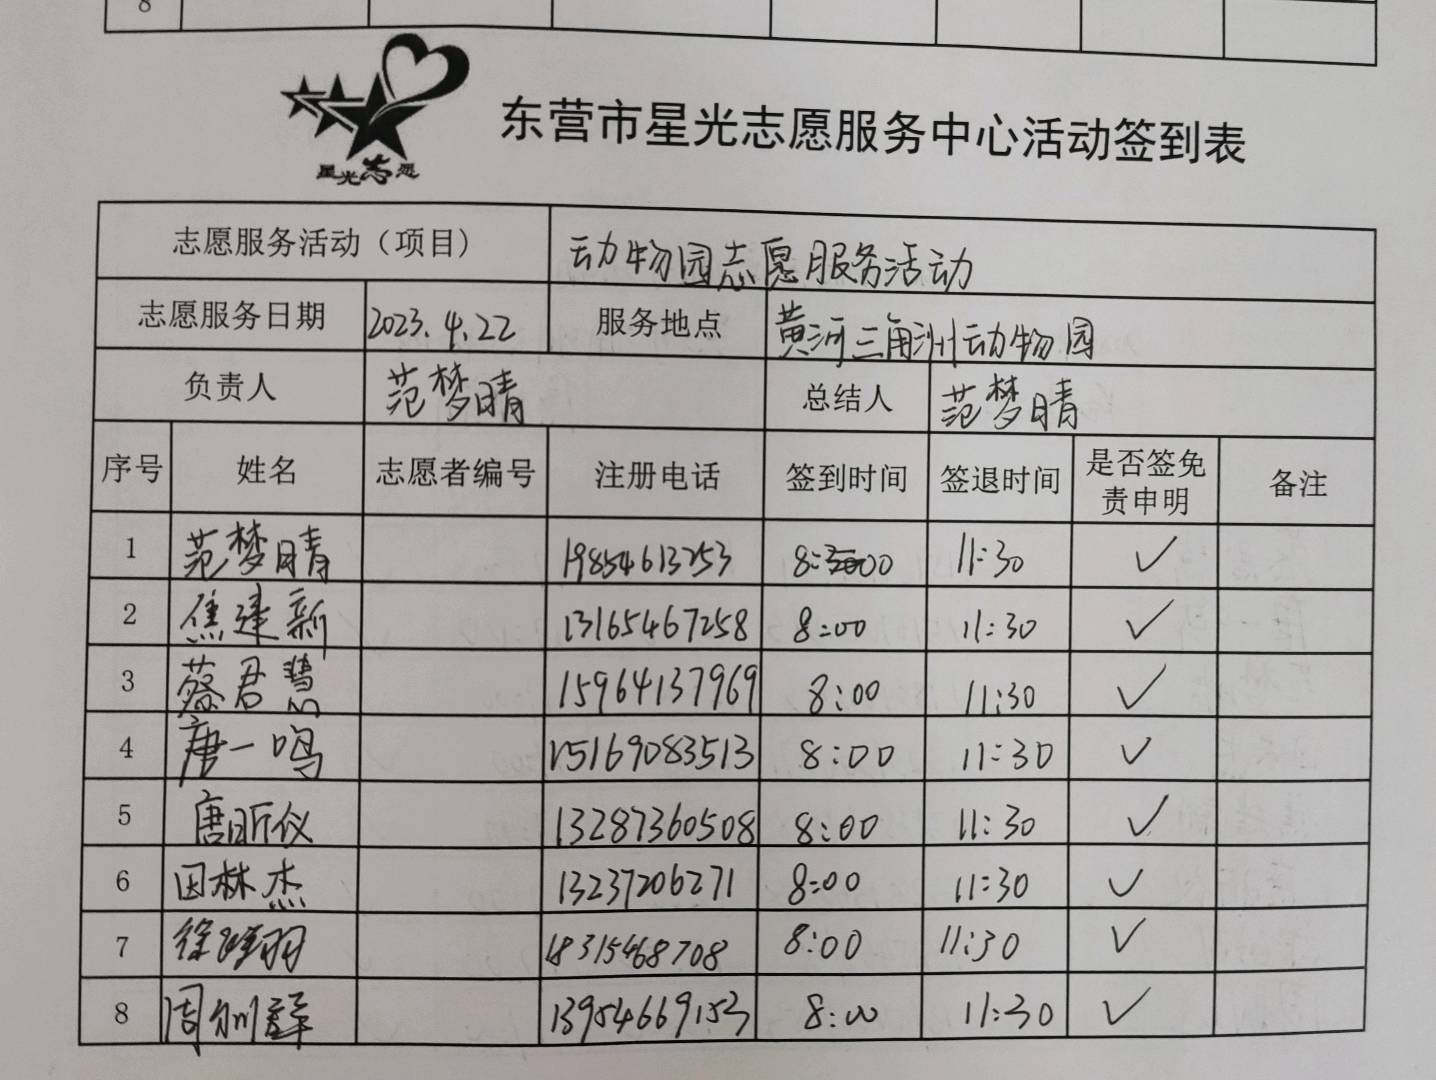 8
星光志愿
东营市星光志愿服务中心活动签到表
志愿服务活动（项目） 动物园志愿服务活动
志愿服务日期 2023.4.22 服务地点 黄河三角洲动物园
负责人 范梦晴 总结人 范梦晴
序号 姓名 志愿者编号 注册电话 签到时间 签退时间 是否签免责申明 备注
1 范梦晴 19854613253 8:00 11:30 ✓
2 焦建新 13165467258 8:00 11:30 ✓
3 蔡君慧 15964137969 8:00 11:30 ✓
4 唐一鸣 15169083513 8:00 11:30 ✓
5 唐昕仪 13287360508 8:00 11:30 ✓
6 田林杰 13237206271 8:00 11:30 ✓
7 徐 羽 18315468708 8:00 11:30 ✓
8 周 13954669153 8:00 11:30 ✓